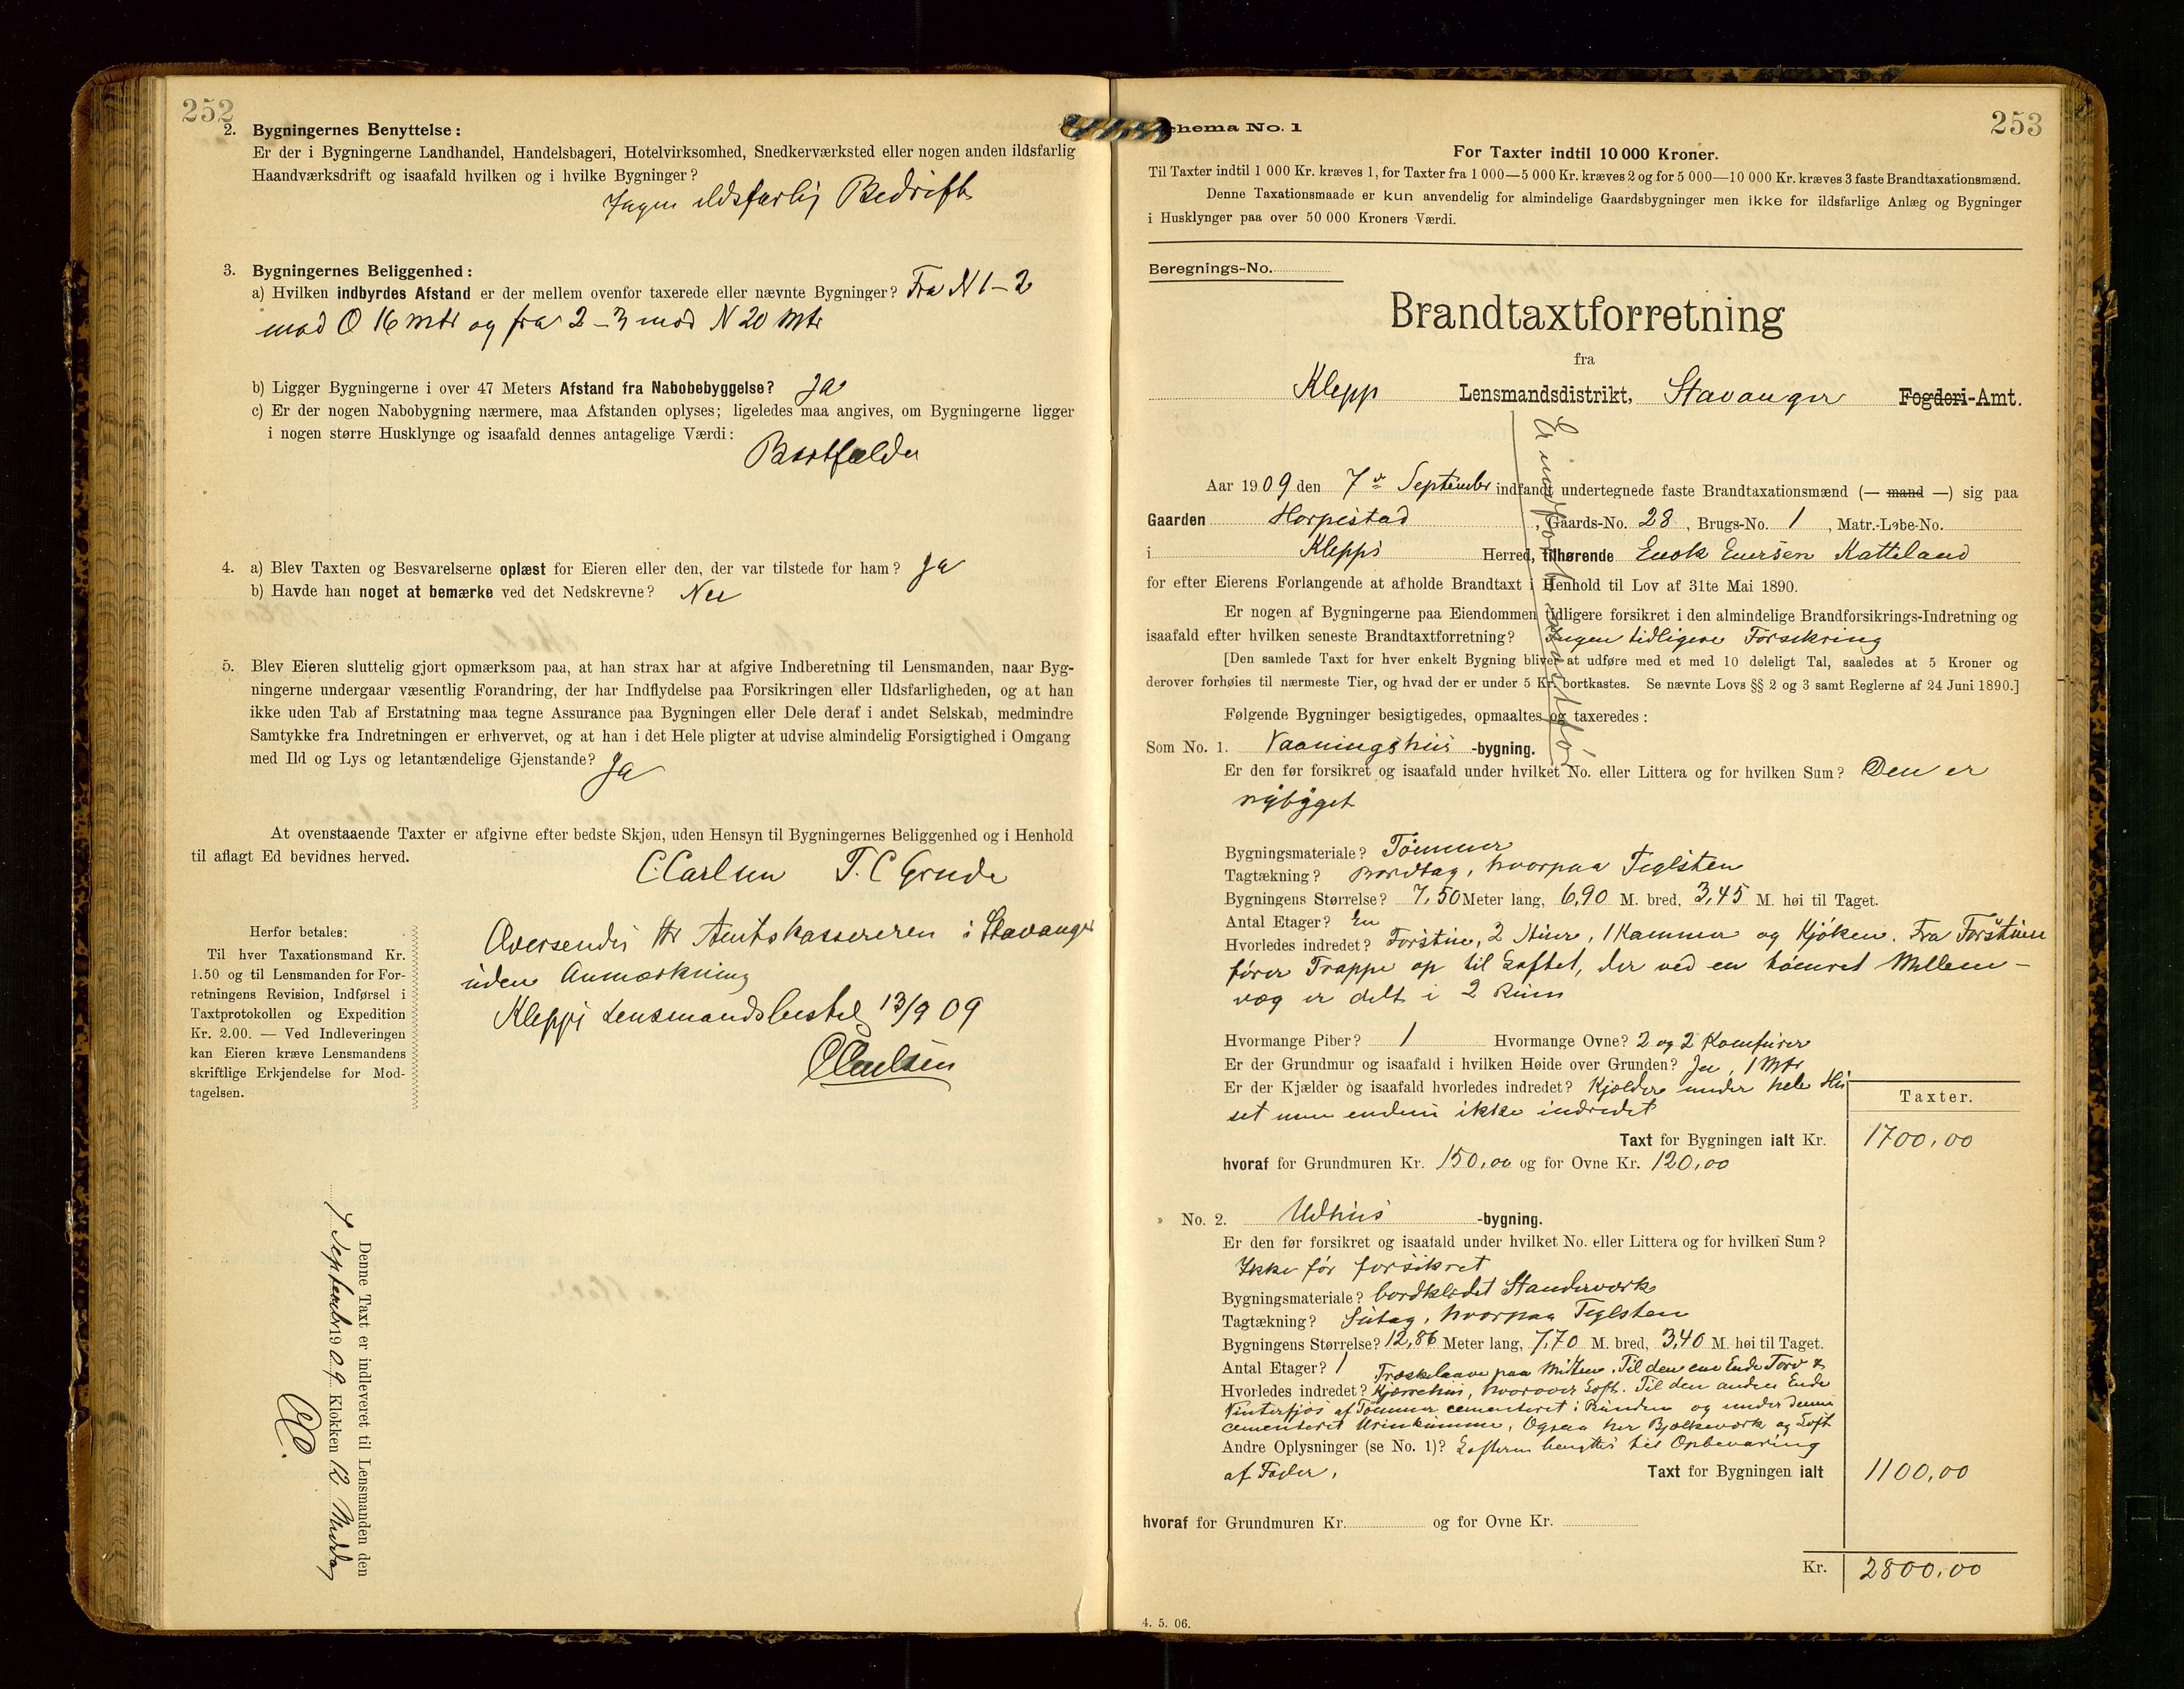 252
2. Bygningernes Benyttelse:
Er der i Bygningerne Landhandel, Handelsbageri, Hotelvirksomhed, Snedkerværksted eller nogen anden ildsfarlig
Haandværksdrift og isaafald hvilken og i hvilke Bygninger?
Ingen ildsfarlig Bedrift
3. Bygningernes Beliggenhed:
a) Hvilken indbyrdes Afstand er der mellem ovenfor taxerede eller nævnte Bygninger? Fra N 1-2
mod O 16 mtr og fra 2-3 mod N 20 mtr
b) Ligger Bygningerne i over 47 Meters Afstand fra Nabobebyggelse? Ja
c) Er der nogen Nabobygning nærmere, maa Afstanden oplyses; ligeledes maa angives, om Bygningerne ligger
i nogen større Husklynge og isaafald dennes antagelige Værdi:
Bortfalder
4. a) Blev Taxten og Besvarelserne oplæst for Eieren eller den, der var tilstede for ham? Ja
b) Havde han noget at bemærke ved det Nedskrevne? Nei
5. Blev Eieren sluttelig gjort opmærksom paa, at han strax har at afgive Indberetning til Lensmanden, naar Byg-
ningerne undergaar væsentlig Forandring, der har Indflydelse paa Forsikringen eller Ildsfarligheden, og at han
ikke uden Tab af Erstatning maa tegne Assurance paa Bygningen eller Dele deraf i andet Selskab, medmindre
Samtykke fra Indretningen er erhvervet, og at han i det Hele pligter at udvise almindelig Forsigtighed i Omgang
med Ild og Lys og letantændelige Gjenstande? Ja
At ovenstaaende Taxter er afgivne efter bedste Skjøn, uden Hensyn til Bygningernes Beliggenhed og i Henhold
til aflagt Ed bevidnes herved.
C. Carlsen T. C Grude
Herfor betales:
Til hver Taxationsmand Kr.
1.50 og til Lensmanden for For-
retningens Revision, Indførsel i
Taxtprotokollen og Expedition
Kr. 2.00. — Ved Indleveringen
kan Eieren kræve Lensmandens
skriftlige Erkjendelse for Mod-
tagelsen.
Oversendes Hr Amtskassereren i Stavanger
uden Anmærkning
Klepps Lensmandsbestil 13/9 09
C Carlsen
Denne Taxt er indleveret til Lensmanden den
7 September 1909 Klokken 12 Middag
CC.
253
Schema No. 1
For Taxter indtil 10 000 Kroner.
Til Taxter indtil 1 000 Kr. kræves 1, for Taxter fra 1 000—5 000 Kr. kræves 2 og for 5 000—10 000 Kr. kræves 3 faste Brandtaxationsmænd.
Denne Taxationsmaade er kun anvendelig for almindelige Gaardsbygninger men ikke for ildsfarlige Anlæg og Bygninger
i Husklynger paa over 50 000 Kroners Værdi.
Beregnings-No.
Brandtaxtforretning
fra
Klepp Lensmandsdistrikt, Stavanger Fogderi-Amt.
Aar 1909 den 7de September indfandt undertegnede faste Brandtaxationsmænd (— mand —) sig paa
Gaarden Horpestad, Gaards-No. 28, Brugs-No. 1, Matr.-Løbe-No.
i Klepps Herred, tilhørende Enok Enersen Katteland
for efter Eierens Forlangende at afholde Brandtaxt i Henhold til Lov af 31te Mai 1890.
Er nogen af Bygningerne paa Eiendommen tidligere forsikret i den almindelige Brandforsikrings-Indretning og
isaafald efter hvilken seneste Brandtaxtforretning? Ingen tidligere Forsikring
[Den samlede Taxt for hver enkelt Bygning bliver at udføre med et med 10 deleligt Tal, saaledes at 5 Kroner og
derover forhøies til nærmeste Tier, og hvad der er under 5 Kr. bortkastes. Se nævnte Lovs §§ 2 og 3 samt Reglerne af 24 Juni 1890.]
Følgende Bygninger besigtigedes, opmaaltes og taxeredes:
Som No. 1. Vaaningshus -bygning.
Er den før forsikret og isaafald under hvilket No. eller Littera og for hvilken Sum? Den er
nybygget
Bygningsmateriale? Tømmer
Tagtækning? Bordtag, hvorpaa Teglsten
Bygningens Størrelse? 7,50 Meter lang, 6,90 M. bred, 3,45 M. høi til Taget.
Antal Etager? En
Hvorledes indredet? Forstue, 2 Stuer, 1 Kammer og Kjøken. Fra Forstuen
fører Trappe op til Loftet, der ved en tømret Mellem-
væg er delt i 2 Rum
Hvormange Piber? 1 Hvormange Ovne? 2 og 2 Komfurer
Er der Grundmur og isaafald i hvilken Høide over Grunden? Ja, 1 Mtr
Er der Kjælder og isaafald hvorledes indredet? Kjælder under hele Hu
set men endnu ikke indredet
Taxter.
Taxt for Bygningen ialt Kr. 1700,00
hvoraf for Grundmuren Kr. 150,00 og for Ovne Kr. 120,00
No. 2. Udhus -bygning.
Er den før forsikret og isaafald under hvilket No. eller Littera og for hvilken Sum?
Ikke før forsikret
Bygningsmateriale? bordklædt Standerværk
Tagtækning? Sutag, hvorpaa Teglsten
Bygningens Størrelse? 12,86 Meter lang, 7,70 M. bred, 3,40 M. høi til Taget.
Antal Etager? 1 Træskelaave paa Midten. Til den ene Ende Torv &
Hvorledes indredet? Kjærrehus, hvorover Loft. Til den anden Ende
Vinterfjøs af Tømmer cementeret i Bunden og under denne
cementeret Urinkumme, Ogsaa her Bjælkeværk og Loft
Andre Oplysninger (se No. 1)? Lofterne benyttes til Opbevaring
af Foder. Taxt for Bygningen ialt 1100,00
hvoraf for Grundmuren Kr. og for Ovne Kr.
Kr. 2800,00
4. 5. 06.